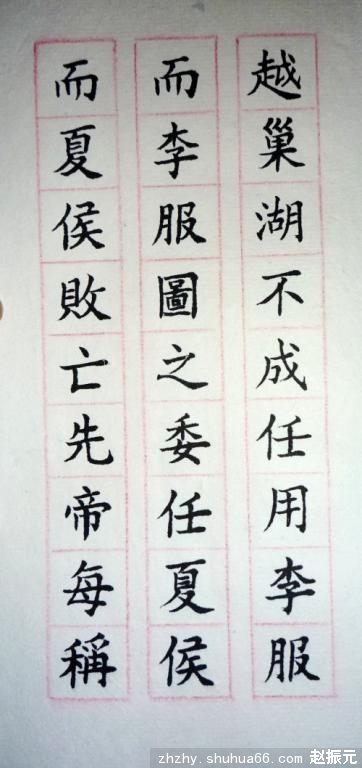 越巢湖不成任用李服
而李服圖之委任夏侯
而夏侯敗亡先帝每稱
zhzhy.shuhua66.com 赵振元